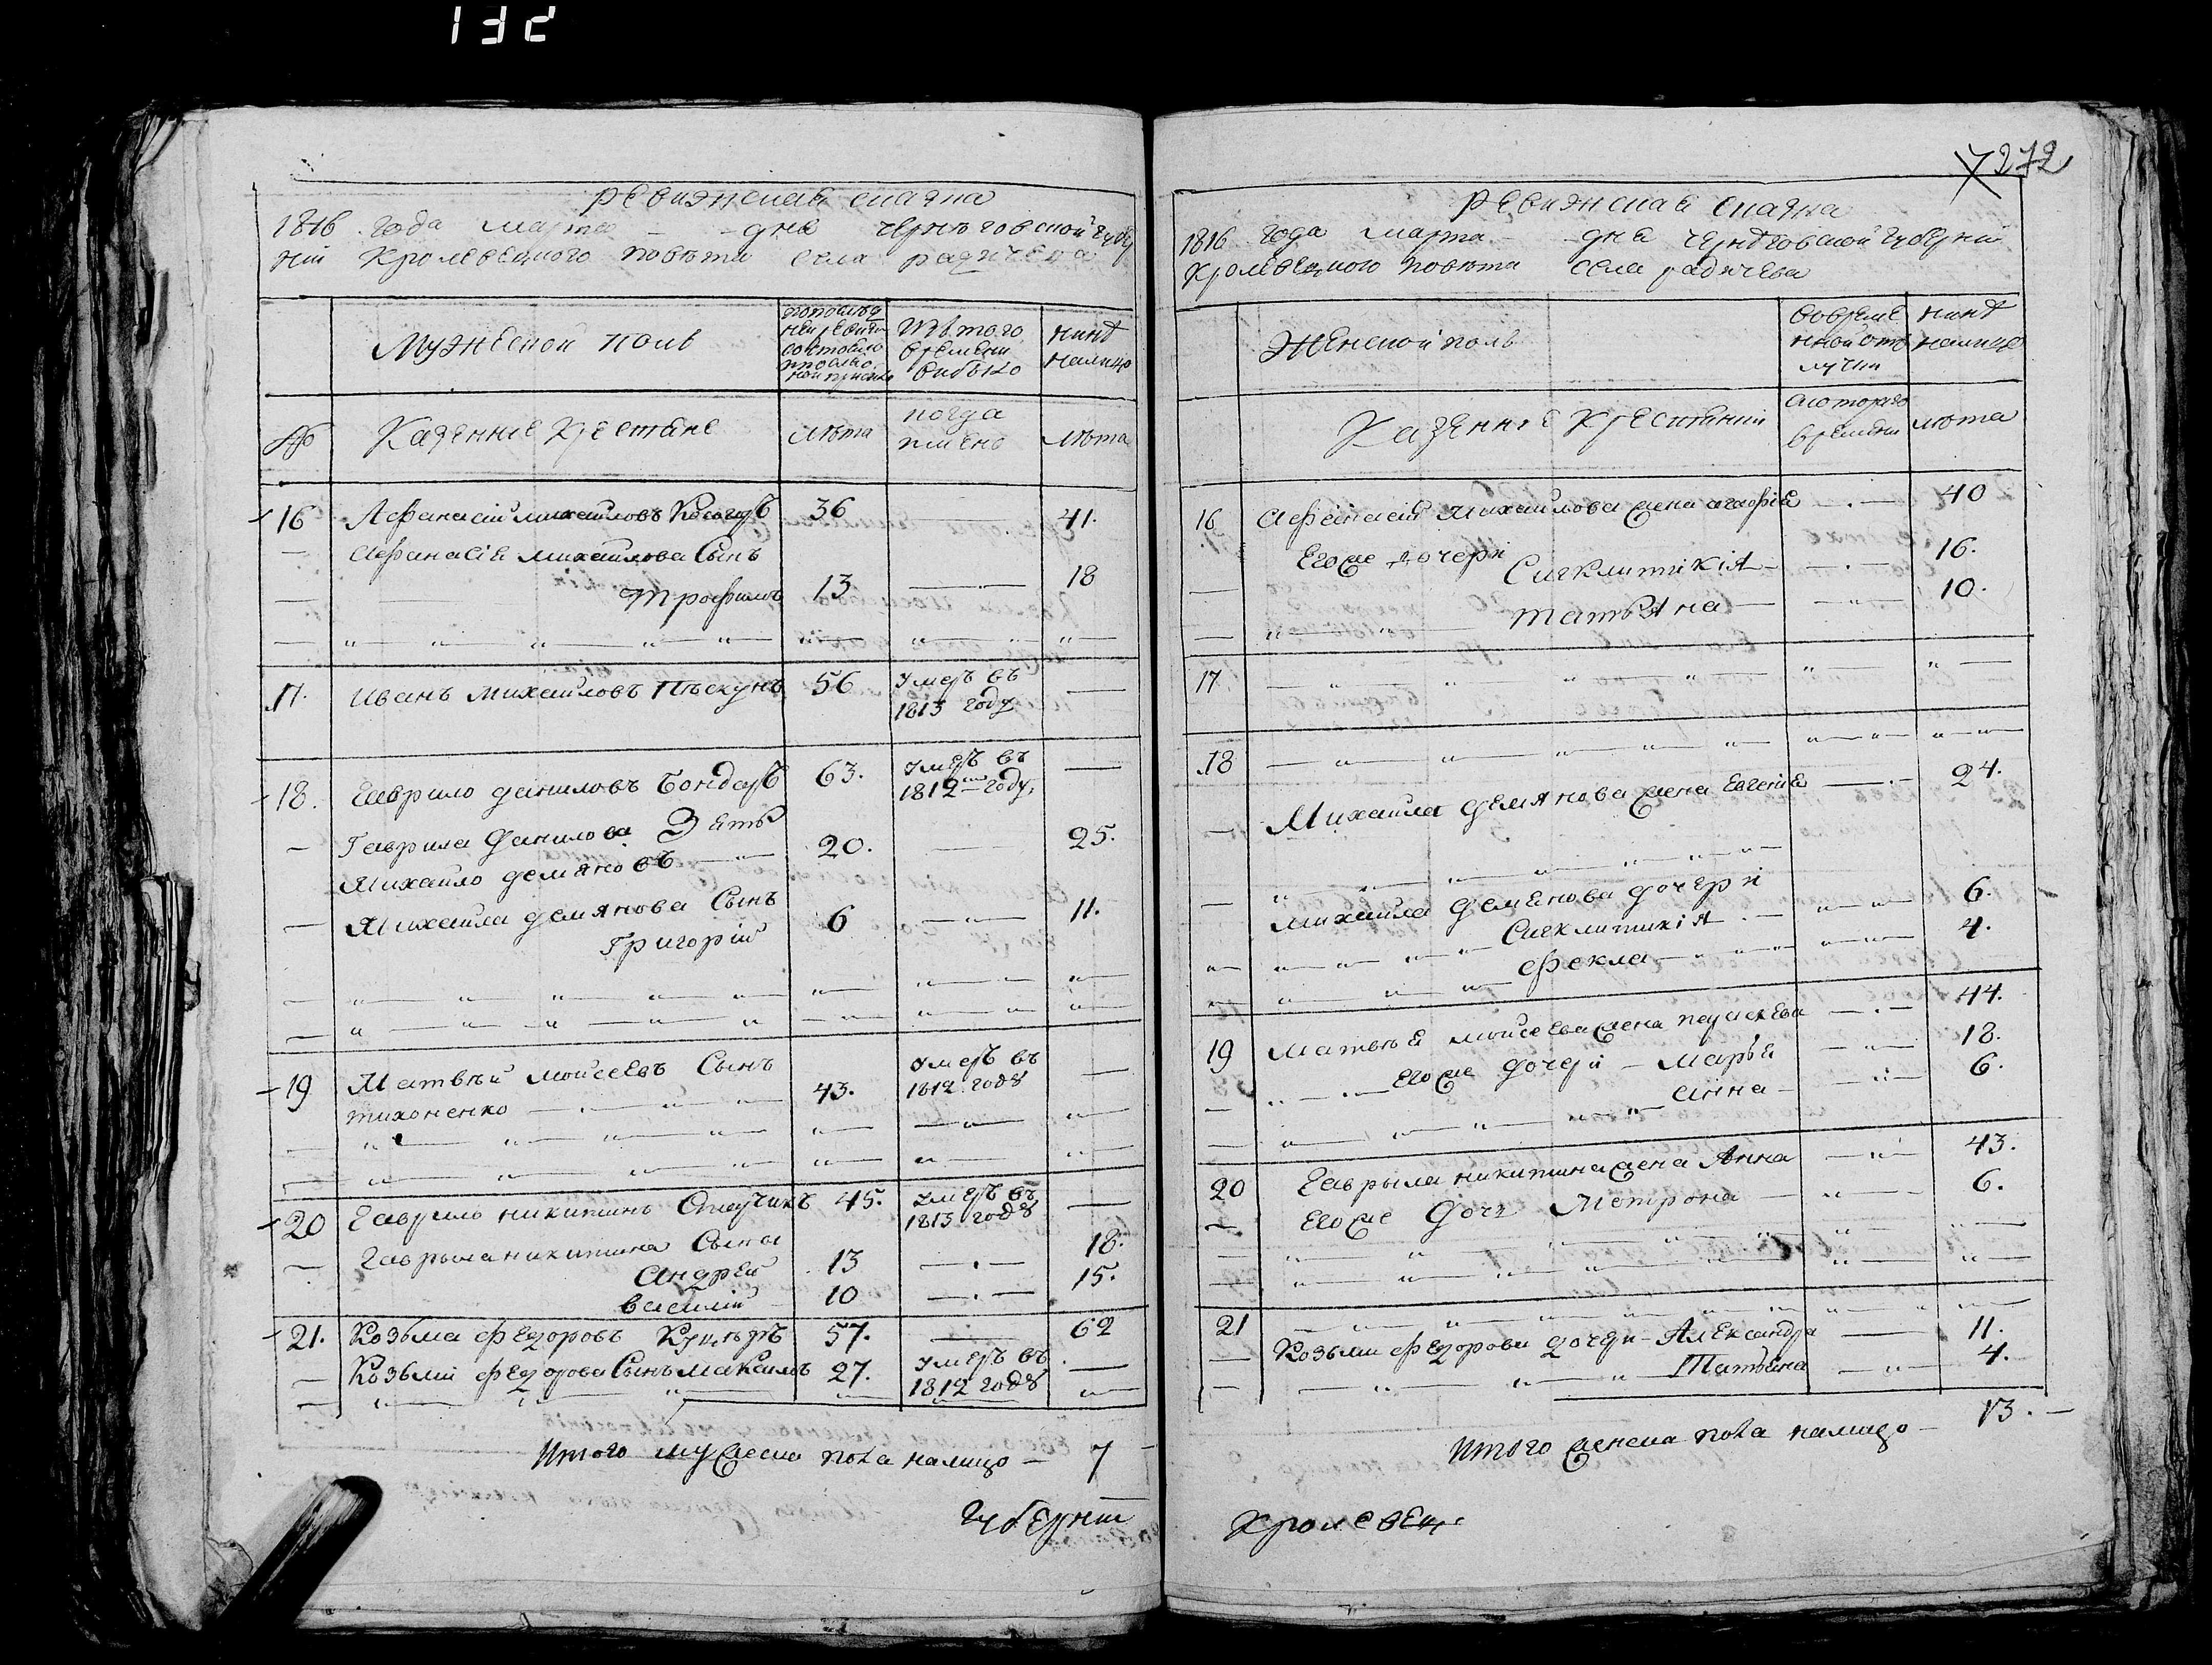 132
ревизская сказка
1816 года марта — дня черниговской губер
нии кролевецкого повѣта села радичева
Мужеской полъ
изъ того
времени
выбыло
нынѣ
налицо
№
Казенние крестяне
лѣта
когда
имено
лѣта
16 Афанасий михайловъ 36 — 41.
— Афанасия михайлова Сынъ
— Трофимъ 13 — 18
17. Иванъ михайловъ Пѣскунъ 56 Умеръ въ —
1813 году
18. Гаврило даниловъ Бондарь 63. Умеръ въ —
1812 году,
— Гаврила данилова Зять
Михайло демяновъ — 20. — 25.
— Михайла демянова Сынъ
Григорій 6 — 11.
19 Матвѣй моисеевъ Сынъ Умеръ въ —
тихоненко — 43. 1812 годȣ
20 Гаврило никитинъ 45. Умеръ въ —
1813 годȣ
— Гаврыла никитина Сыны
Андрей 13 — 18.
василій 10 — 15.
21. Козьма федоровъ 57. — 62
— Козьми федорова Сынъ максимъ 27. Умеръ въ —
1812 годȣ
Итого мужеска пола налицо — 7
губерніи
272
ревизская сказка
1816 года марта — дня черниговской губерніи
кролевецкого повѣта села радичева
Женской полъ
во време
нной отъ
лучки
нынѣ
налицо
Казенние крестянки
скоторого
времени
лѣта
16 Афанасия Михайлова жена агафія — 40
Его же дочери
Сигклитикія — 16.
татьяна — 10.
17
18
— Михайла демянова жена Евгенія — 24.
— михайла демянова дочери
Сигклитикія — 6.
фекла — 4.
19 матвѣя моисеева жена параскева — 44.
Его же дочери — марья — 18.
анна — 6.
20 Гаврыла никитина жена Анна — 43.
Его же дочь Мотрона — 6.
21
— Козьми федорова дочери Александра — 11.
Татьяна — 4.
Итого женска пола налицо — 13.
Кролевец